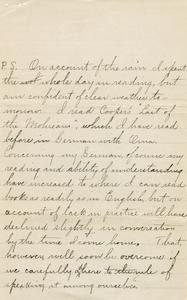 P.S. On account of the rain I spent
the whole day in reading, but
am confident of clear weather to-
morrow. I read Cooper's "Last of
the Mohicans", which I have read
before in German with Oma.
Concerning my German, of course my
reading and ability of understanding
have increased to where I can read
books as readily as in English, but on
account of lack in practice will have
declined slightly in conversation
by the time I come home. That,
however, will soon be overcome if
we carefully adhere to the rule of
speaking it among ourselves.